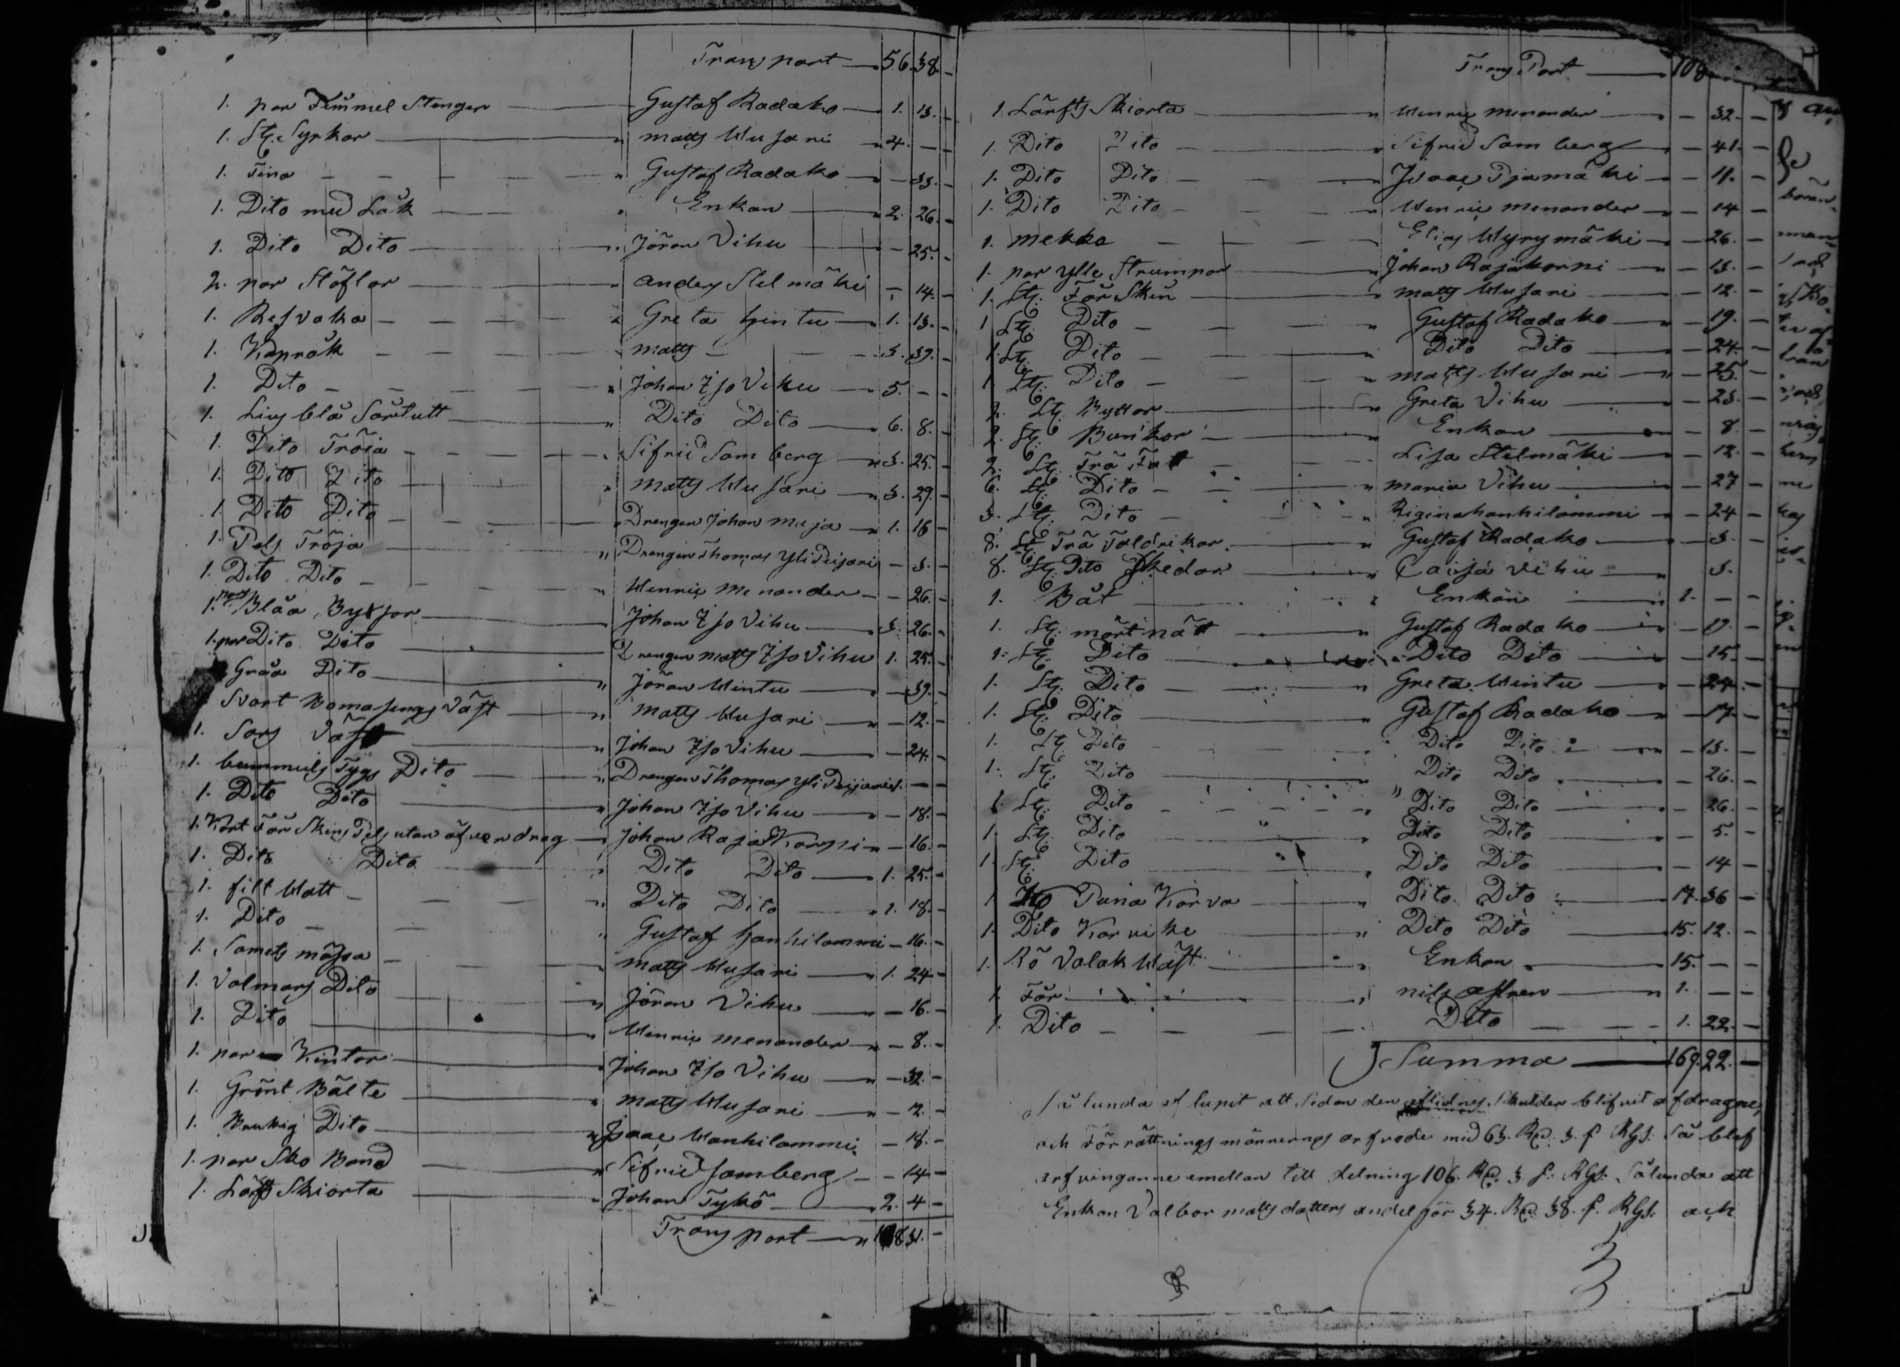 Transport — 56. 38. -
1. par Fimmel Stenger — Gustaf Radako — 1. 13. -
1. St. Syrkor — matts Uusani — 4. - -
1. Tina — Gustaf Radako — - 33. -
1. Dito med Låk — Enkan — 2. 26. -
1. Dito Dito — Jöran Vihu — - 25. -
2. par Stöflor — anders Stelmäki — - 14. -
1. Resvaka — Greta Hintu — 1. 13. -
1. Kapråk — matts — 3. 39. -
1. Dito — Johan Iso Vihu — 5. - -
1. Liusblå Sörtutt — Dito Dito — 6. 8. -
1. Dito Tröia — Sifrid Samberg — 3. 25. -
1. Dito Dito — matts Uusani — 3. 29. -
1. Dito Dito — Drengen Johan maja — 1. 16 -
1. Pels Tröja — Drengen Thomas Yli Peijari — - 3. -
1. Dito Dito — Henric menander — - 26. -
1. par Blåa Byxsor — Johan Iso Vihu — 3. 26. -
1. par Dito Dito — Drengen matts Iso Vihu 1. 25. -
Gråa Dito — Jöran Hintu — - 39. -
Svart Väst — matts Uusani — - 12. -
1. Sars Väst — Johan Iso Vihu — - 24. -
1. bummuls Tygs Dito — Drengen Thomas Yli Peijari 1. - -
1. Dito Dito — Johan Iso Vihu — - 18. -
1. KortFör Skins Pels utan öfverdrag — Johan Raja Korpi — - 16. -
1. Dito Dito — Dito Dito — 1. 25. -
1. filt Hatt — Dito Dito — 1. 18. -
1. Dito — Gustaf Hanhilammi - 16. -
1. Samets mössa — matts Uusani — 1. 24 -
1. Valmars Dito — Jöran Vihu — - 16. -
1. Dito — Henric menander — - 8. -
1. par Vantar — Johan Iso Vihu — - 32. -
1. Grönt Bälte — matts Uusani — - 2. -
1. Brukig Dito — Isaac Hanhilammi — - 18. -
1. par Sko Band — Sifrid Samberg — - 14 -
1. Lärfts Skiorta — Johan Tykö — 2. 4 -
Transport — 108 31. -
Trans Port — 108
1. Lärfts Skiorta — Henric menander — - 32. -
1. Dito Dito — Sifrid Samberg — - 41. -
1. Dito Dito — Isaac Pjamäki — - 11. -
1. Dito Dito — Henric menander — - 14 -
1. mekko — Elias Myrymäki — - 26. -
1. par ylle Strumpor — Johan Rajakorpi — - 13. -
1. St. Får Skin — matts Uusani — - 12. -
1 St. Dito — Gustaf Radako — - 19. -
1. St. Dito — Dito Dito — - 24. -
1. St. Dito — matts Uusani — - 25. -
2. St. Byttor — Greta Vihu — - 23. -
2. St. Bunkor — Enkan — - 8. -
2. St. Trä Fat — Lisa Stelmäki — - 12. -
6. St. Dito — maria Vihu — - 27 -
3. St. Dito — Rigina hanhilammi — - 24 -
8. St. Trä Taldrikar — Gustaf Radako — - 3. -
8. St. Dito Skedar — Caisa Vihu — - 3.
1. Båt — Enkan — 1. - -
1. St. mörtnät — Gustaf Radako — - 17. -
1. St. Dito — Dito Dito — - 15. -
1. St. Dito — Greta Hintu — - 24. -
1. St. Dito — Gustaf Radako — - 17. -
1. St. Dito — Dito Dito — - 13. -
1. St. Dito — Dito Dito — - 26. -
1. St. Dito — Dito Dito — - 26. -
1 St. Dito — Dito Dito — - 5. -
1 St. Dito — Dito Dito — - 14 -
1 Ko Puna Korva — Dito Dito — 17. 36 -
1. Dito Karvike — Dito Dito — 15. 12. -
1. Rö Valak Häst — Enkan — 15. - -
1. Får — nils — 1. - -
1. Dito — Dito — 1. 22. -
Summa — 169. 22. -
Sålunda af lupit att sedan den aflidnes Skulder blifvit afdragne,
och Förrättnings männernas arfvode med 63. Rd. 3. f. Rgs. Så blef
arfvingarne emellan till delning 106. Rd. 3 f. Rgs. Sålunda att
Enkan Valbor matts dotters andel gör 34. Rd. 38. f. Rgs. och